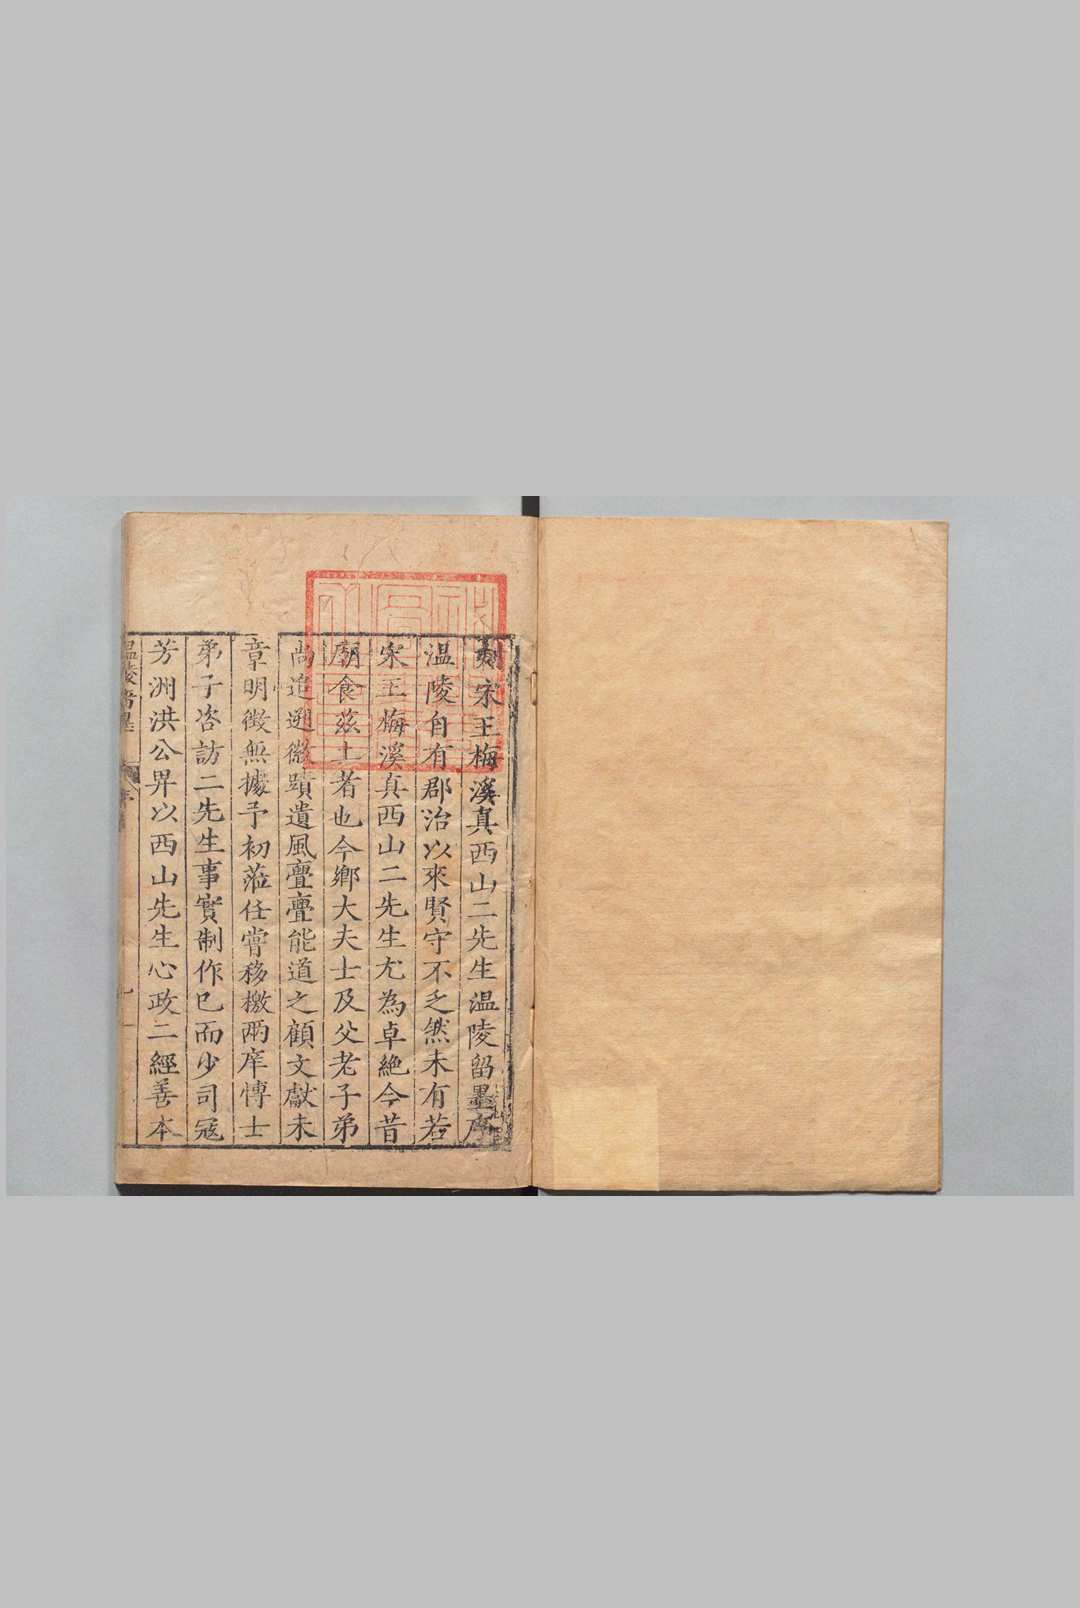 刻宋王梅溪真西山二先生溫陵留墨序
溫陵自有郡治以來賢守不乏然未有若
宋王梅溪真西山二先生尤為卓絶今昔
廟食茲土者也今鄉大夫士及父老子弟
尚追遡微蹟遺風亹亹能道之顧文獻未
章明徵無據予初蒞任嘗移檄兩庠博士
弟子咨訪二先生事實制作已而少司寇
芳洲洪公畀以西山先生心政二經善本
溫陵留墨
序